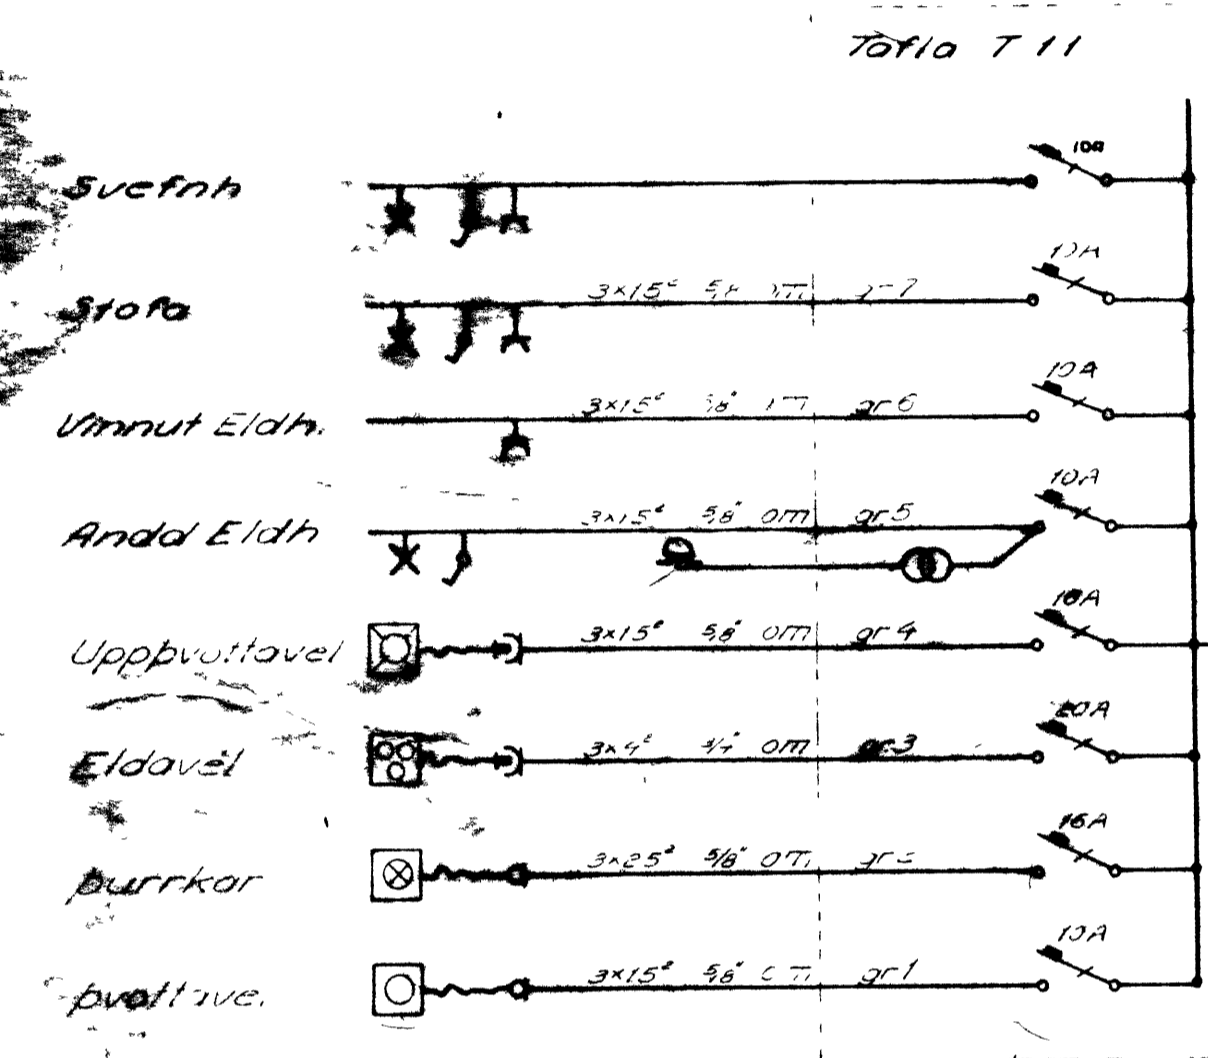 Tafla T 11
Svefnh 10A
Stofa 3×15² 5/8" gr 7 10A
Vinnut Eldh. 3×15² 5/8" gr 6 10A
Andd Eldh 3×15² 5/8" om gr 5 10A
Uppþvottavel 3×15² 5/8" om gr 4 10A
Eldavél 3×4² 3/4" om gr 3 20A
þurrkar 3×25² 5/8" om 16A
þvottavel 3×15² 5/8" gr 1 10A